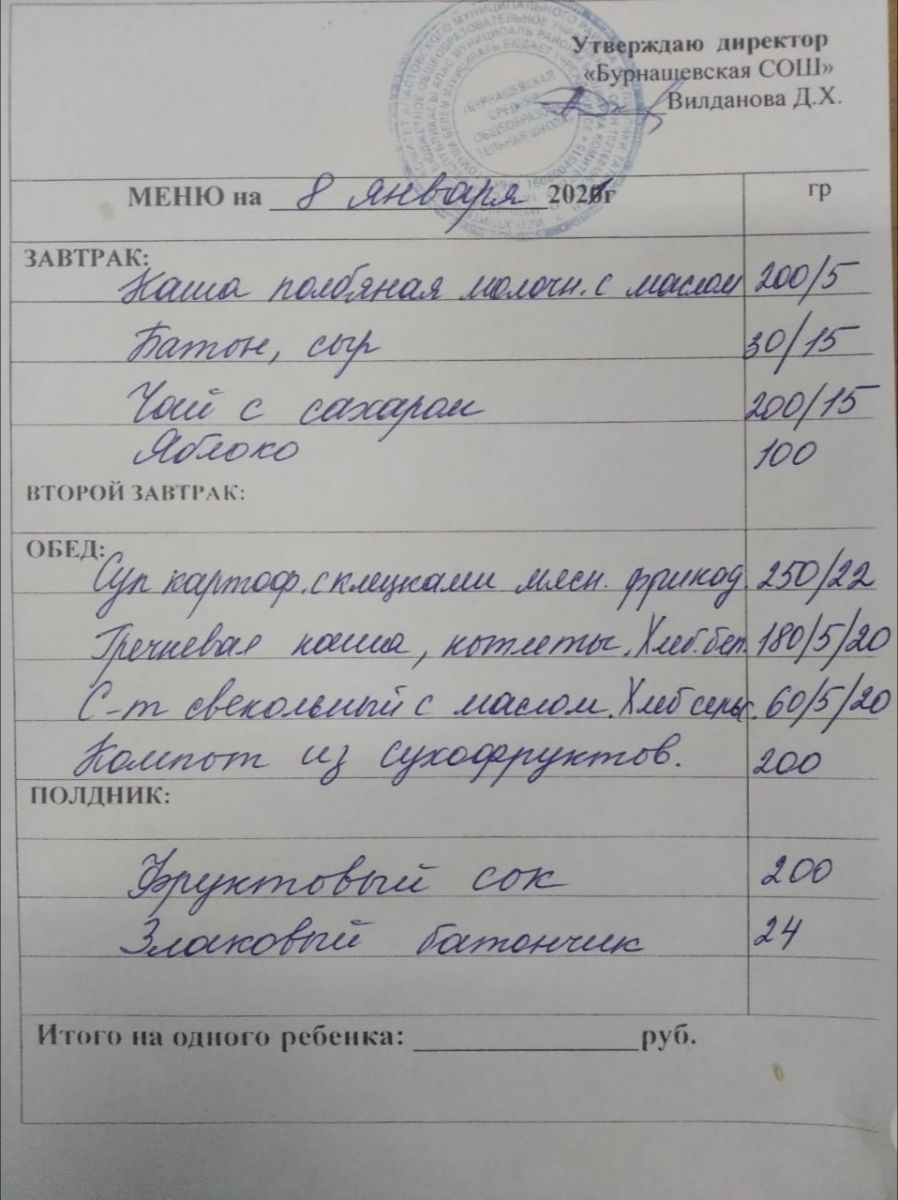 Утверждаю директор
«Бурнашевская СОШ»
Вилданова Д.Х.
«БУРНАШЕВСКАЯ
СРЕДНЯЯ
ОБЩЕОБРАЗОВА
ТЕЛЬНАЯ ШКОЛА»
МЕНЮ на 8 января 202 г
гр
ЗАВТРАК:
Каша полбяная молочн. с маслом 200/5
Батон, сыр 30/15
Чай с сахаром 200/15
Яблоко 100
ВТОРОЙ ЗАВТРАК:
ОБЕД:
Суп картоф. с клецками мясн. фрикад. 250/22
Гречневая каша, котлеты. Хлеб. бел. 180/5/20
С-т свекольный с маслом. Хлеб 60/5/20
Компот из сухофруктов. 200
ПОЛДНИК:
Фруктовый сок 200
Злаковый батончик 24
Итого на одного ребенка: ________________ руб.